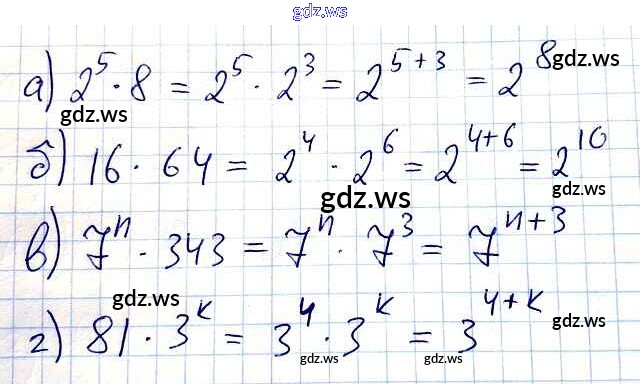 gdz.ws
а) 2⁵ · 8 = 2⁵ · 2³ = 2⁵⁺³ = 2⁸ gdz.ws
gdz.ws
б) 16 · 64 = 2⁴ · 2⁶ = 2⁴⁺⁶ = 2¹⁰
gdz.ws gdz.ws
в) 7ⁿ · 343 = 7ⁿ · 7³ = 7ⁿ⁺³
gdz.ws gdz.ws
г) 81 · 3ᵏ = 3⁴ · 3ᵏ = 3⁴⁺ᵏ
gdz.ws gdz.ws gdz.ws